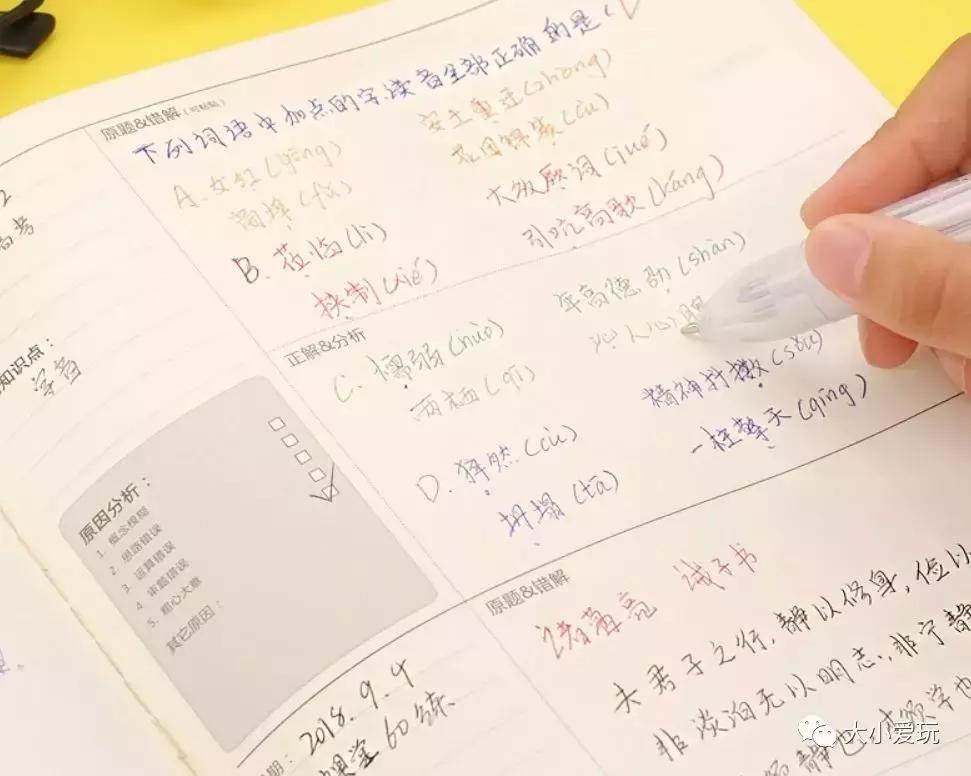 原题&错解(可粘贴)
下列词语中加点的字,读音全部正确的是(
A.女红(gōng) 安土重迁(zhòng)
(fú) (cù)
B.莅临(lì) 大放厥词(jué)
挟制(xié) 引吭高歌(kàng)
高考
知识点:
字音
正解&分析
C.懦弱(nuò) 年高德劭(shào)
两栖(qī) 沁人心脾
精神抖擞(sǒu)
D.猝然(cù) 一柱擎天(qíng)
坍塌(tā)
原因分析:
1. 概念模糊
2. 思路错误
3. 运算错误
4. 审题错误
5. 粗心大意
其它原因:
期: 2018.9.4
课堂60练
原题&错解
诸葛亮 诫子书
夫君子之行,静以修身,俭以
非淡泊无以明志,非宁静
静也,才须学也
大小爱玩